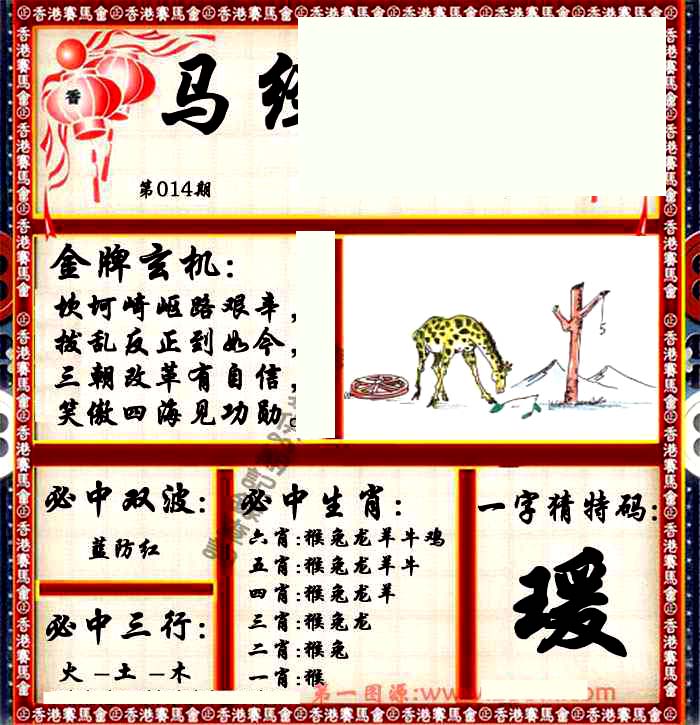 香港賽馬會
香
马经
第014期
金牌玄机：
坎坷崎岖路艰辛，
拨乱反正到如今，
三朝改革有自信，
笑傲四海见功勋。
必中双波：
蓝防红
必中三行：
火－土－木
必中生肖：
六肖:猴兔龙羊牛鸡
五肖:猴兔龙羊牛
四肖:猴兔龙羊
三肖:猴兔龙
二肖:猴兔
一肖:猴
一字猜特码：
瑗
第一图源:www.